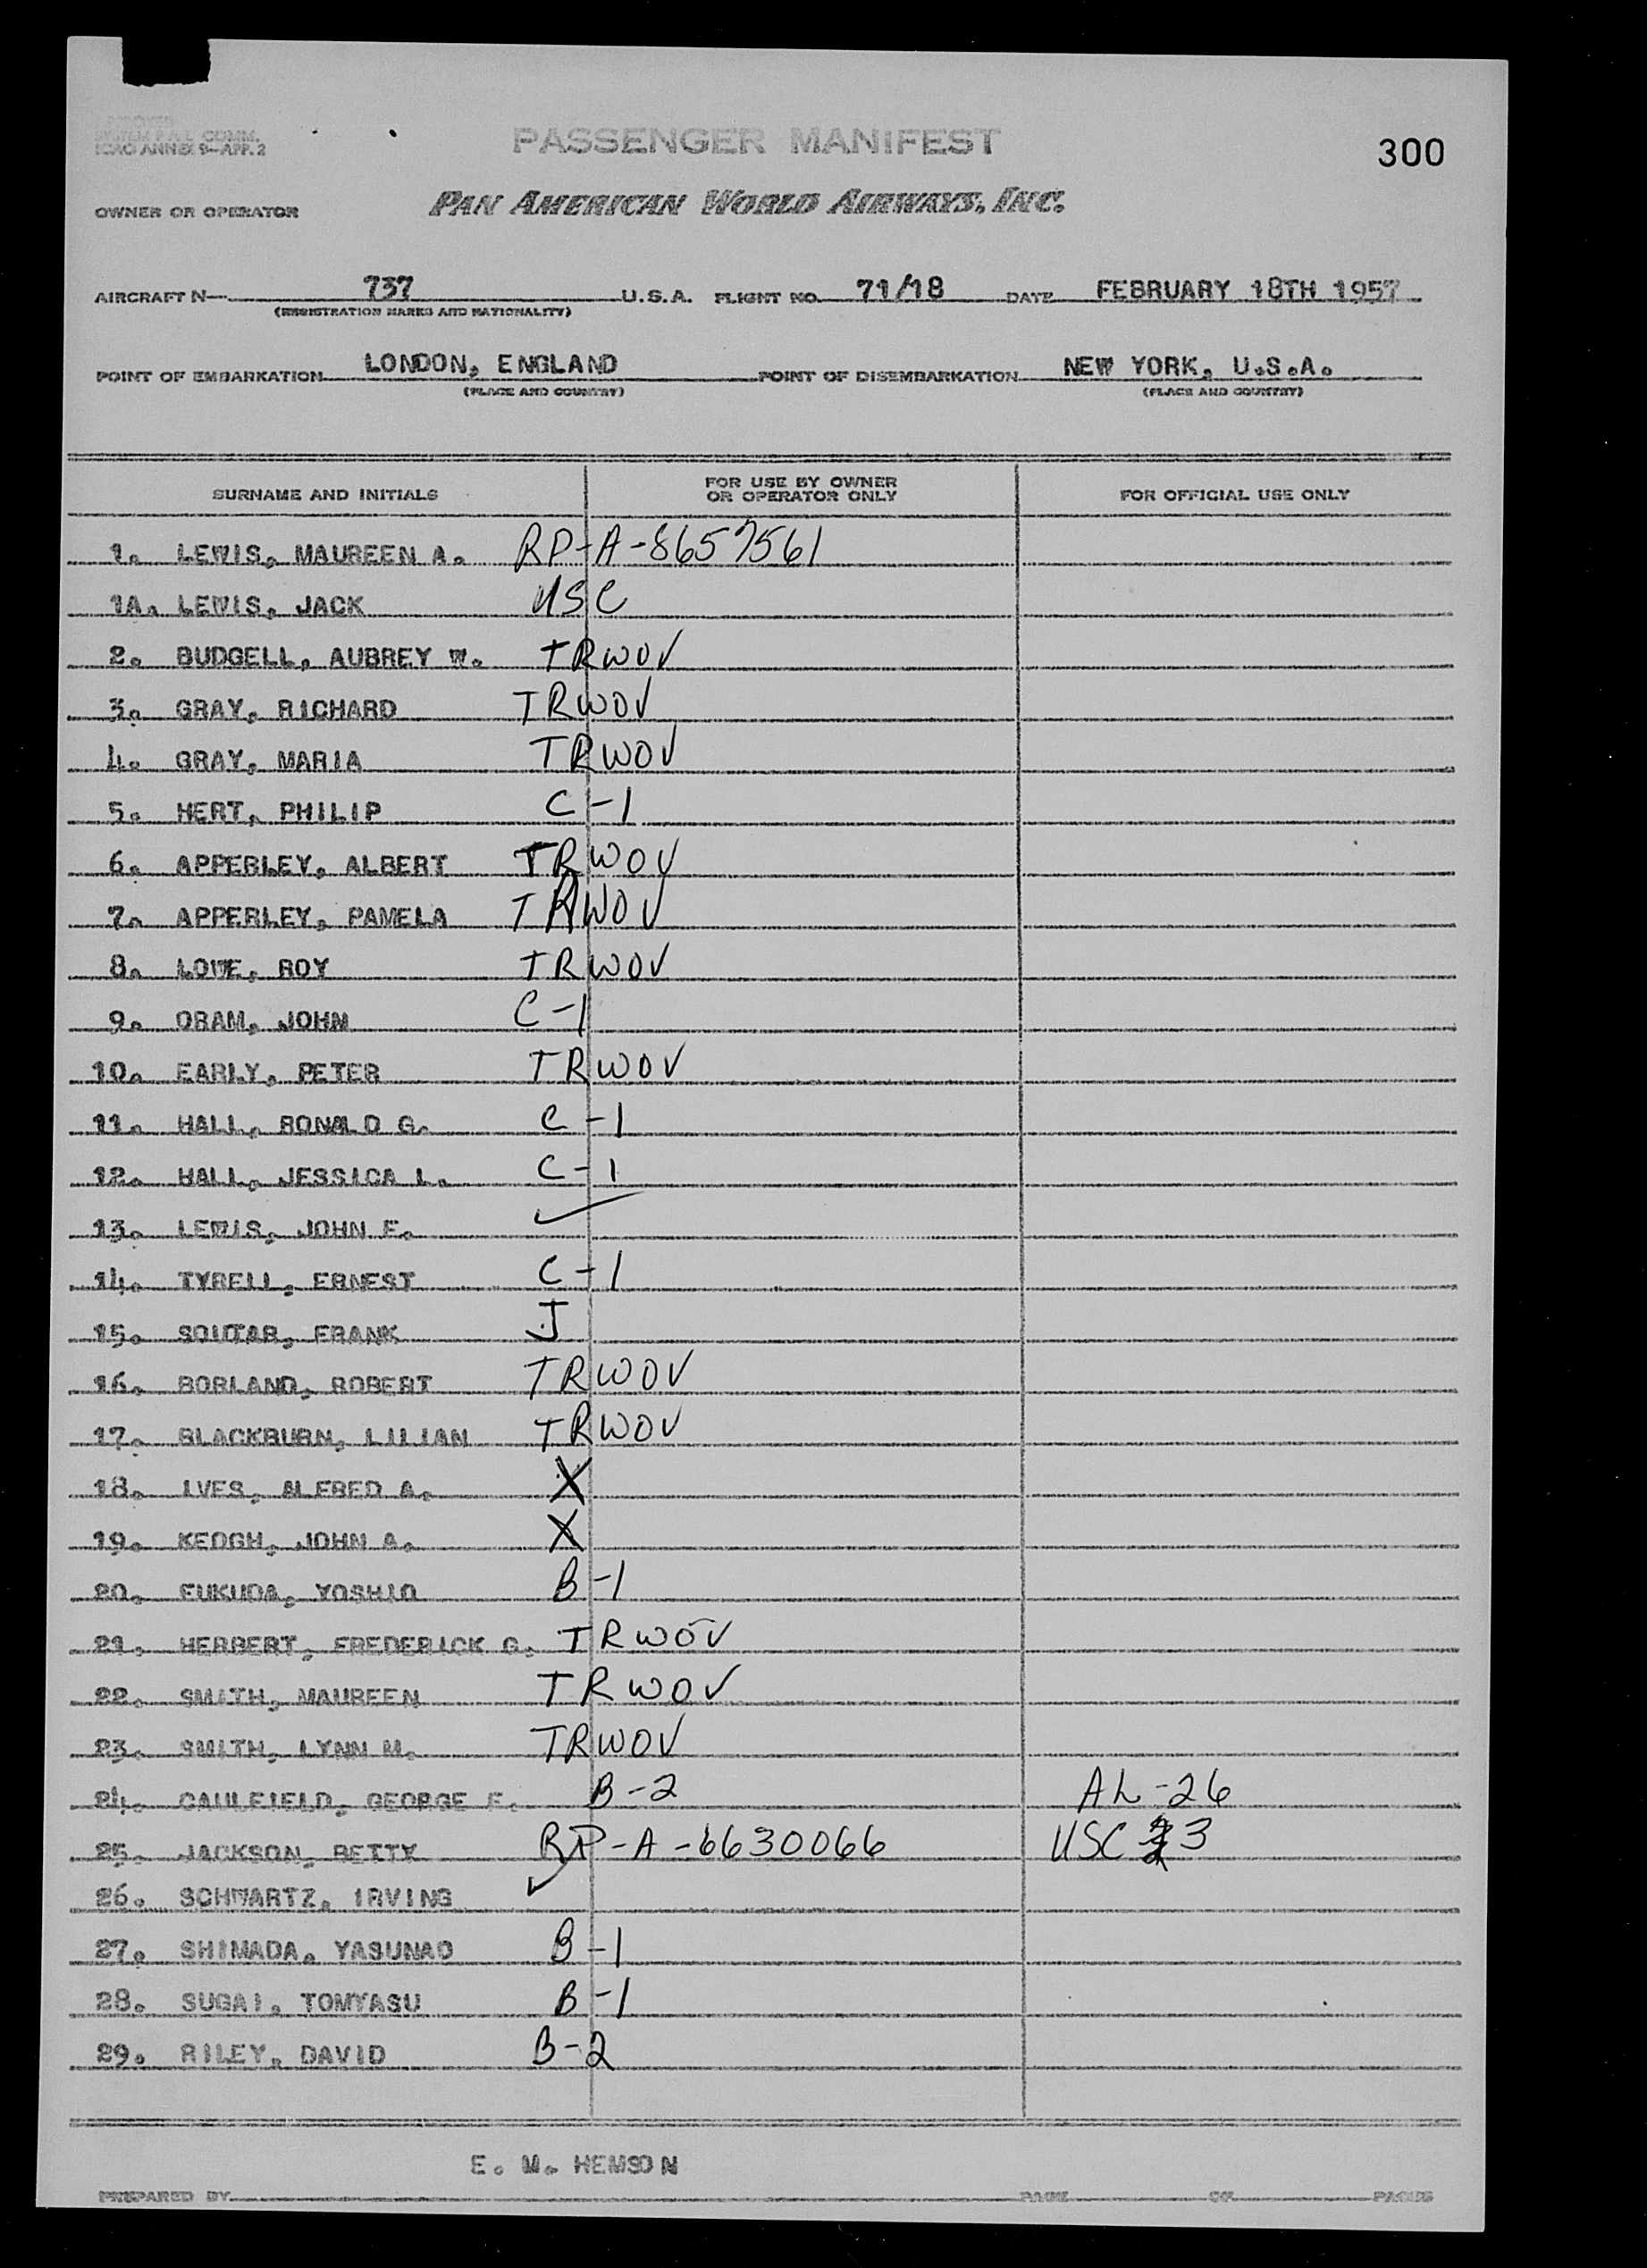 SYSTEM P.A.I. COMM.
ICAO ANNEX 9—APP. 2
PASSENGER MANIFEST
300
OWNER OR OPERATOR PAN AMERICAN WORLD AIRWAYS, INC.
AIRCRAFT N— 737 U.S.A. FLIGHT NO. 71/18 DATE FEBRUARY 18TH 1957
(REGISTRATION MARKS AND NATIONALITY)
POINT OF EMBARKATION LONDON, ENGLAND POINT OF DISEMBARKATION NEW YORK, U.S.A.
(PLACE AND COUNTRY) (PLACE AND COUNTRY)
SURNAME AND INITIALS FOR USE BY OWNER OR OPERATOR ONLY FOR OFFICIAL USE ONLY
1. LEWIS, MAUREEN A. RP-A-8657561
1A. LEWIS, JACK USC
2. BUDGELL, AUBREY W. TRWOV
3. GRAY, RICHARD TRWOV
4. GRAY, MARIA TRWOV
5. HERT, PHILIP C-1
6. APPERLEY, ALBERT TRWOV
7. APPERLEY, PAMELA TRWOV
8. LOWE, ROY TRWOV
9. ORAM, JOHN C-1
10. EARLY, PETER TRWOV
11. HALL, RONALD G. C-1
12. HALL, JESSICA L. C-1
13. LEWIS, JOHN F. ✓
14. TYRELL, ERNEST C-1
15. SOUTAR, FRANK J
16. BORLAND, ROBERT TRWOV
17. BLACKBURN, LILIAN TRWOV
18. IVES, ALFRED A. X
19. KEOGH, JOHN A. X
20. FUKUDA, YOSHIO B-1
21. HERBERT, FREDERICK G. TRWOV
22. SMITH, MAUREEN TRWOV
23. SMITH, LYNN M. TRWOV
24. CAULFIELD, GEORGE F. B-2 AL-26
25. JACKSON, BETTY RP-A-6630066 USC 3
26. SCHWARTZ, IRVING ✓
27. SHIMADA, YASUNAO B-1
28. SUGAI, TOMYASU B-1
29. RILEY, DAVID B-2
E. M. HEMSON
PREPARED BY PAGE OF PAGES